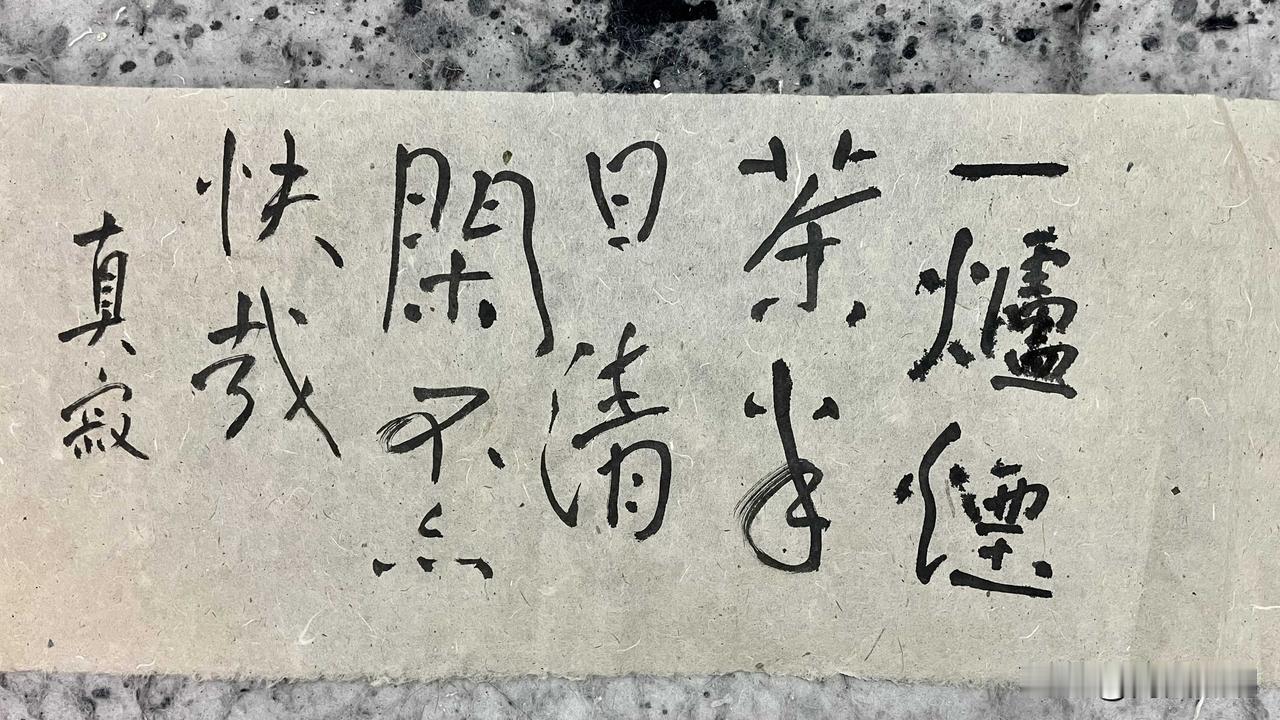 一爐煙
茶半
日清
閑不亦
快哉
真寂